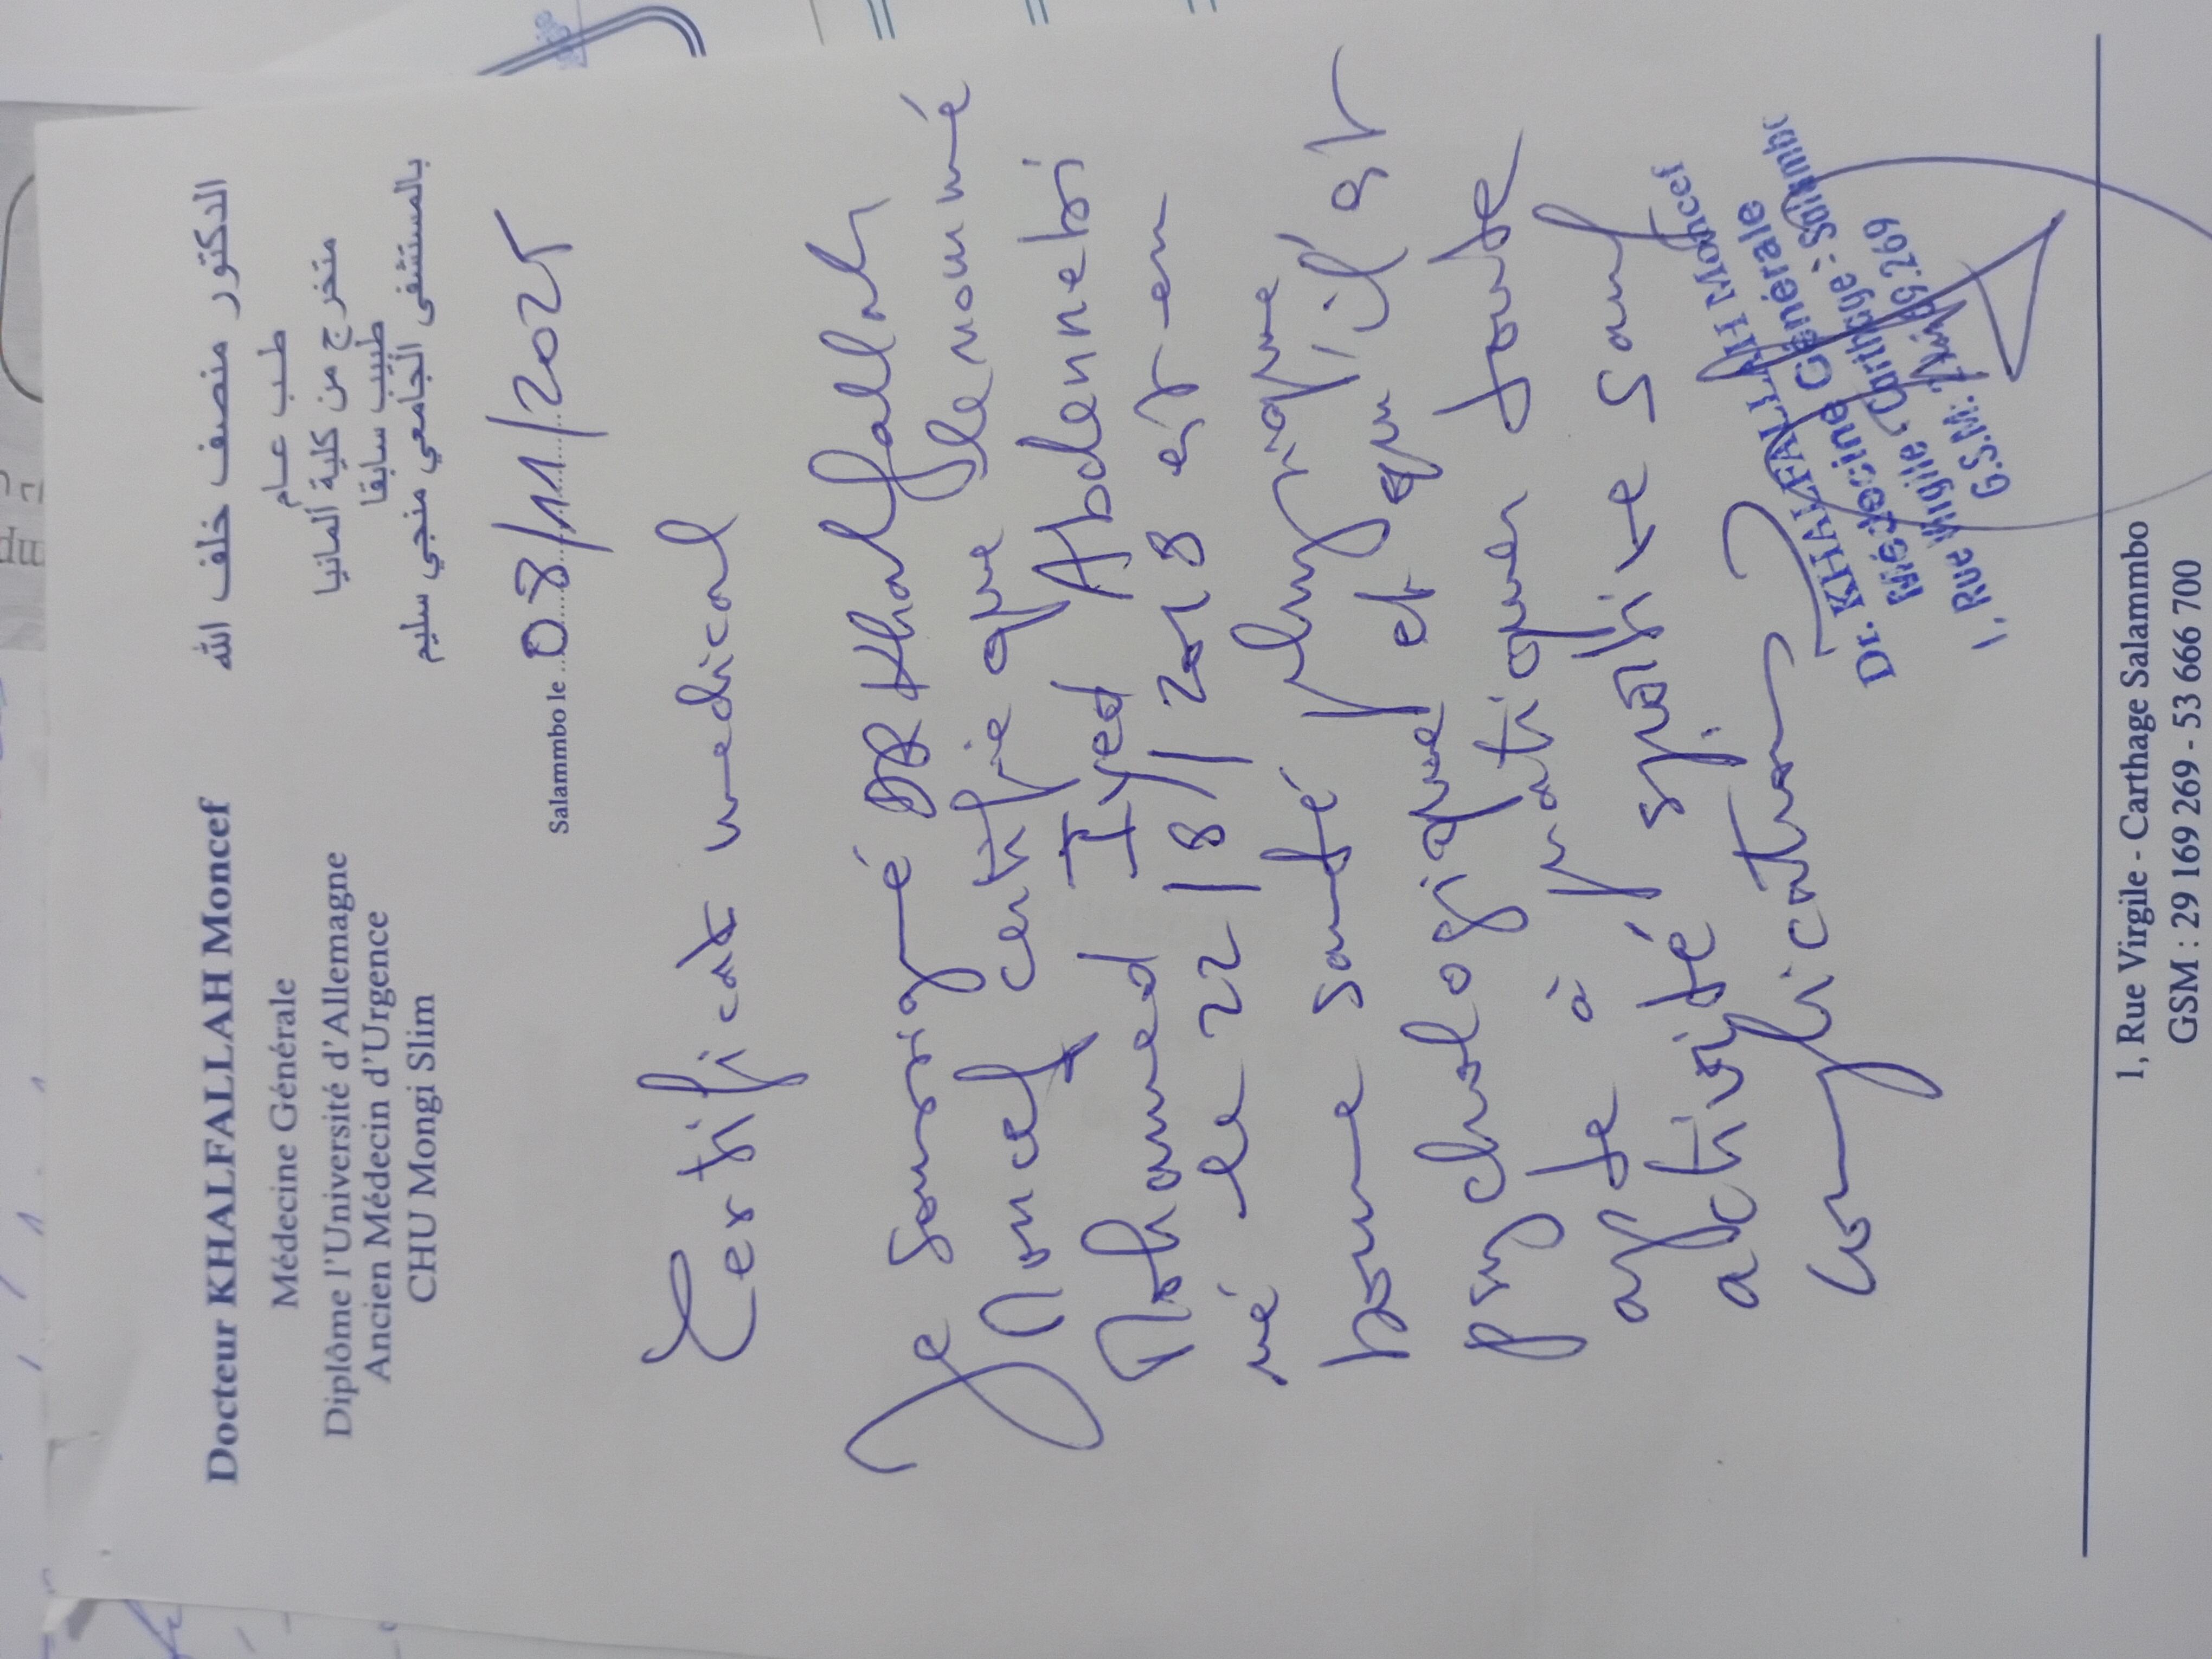 Docteur KHALFALLAH Moncef
Médecine Générale
Diplôme l'Université d'Allemagne
Ancien Médecin d'Urgence
CHU Mongi Slim
الدكتور منصف خلف الله
طب عام
متخرج من كلية ألمانيا
طبيب سابقا
بالمستشفى الجامعي منجي سليم
Salammbo le 08/11/2025
Certificat medical
Je soussigné DR Khalfallah
Moncef certifie que le nommé
Mohamed Iyed Abdennebi
né le 22/8/2013 est en
bonne santé physique
psychologique et qu'il est
apte à pratiquer toute
activité sportive sauf
complication
Dr. KHALFALLAH Moncef
Médecine Générale
1, Rue Virgile Carthage - Salammbo
G.S.M.: 269
1, Rue Virgile - Carthage Salammbo
GSM : 29 169 269 - 53 666 700